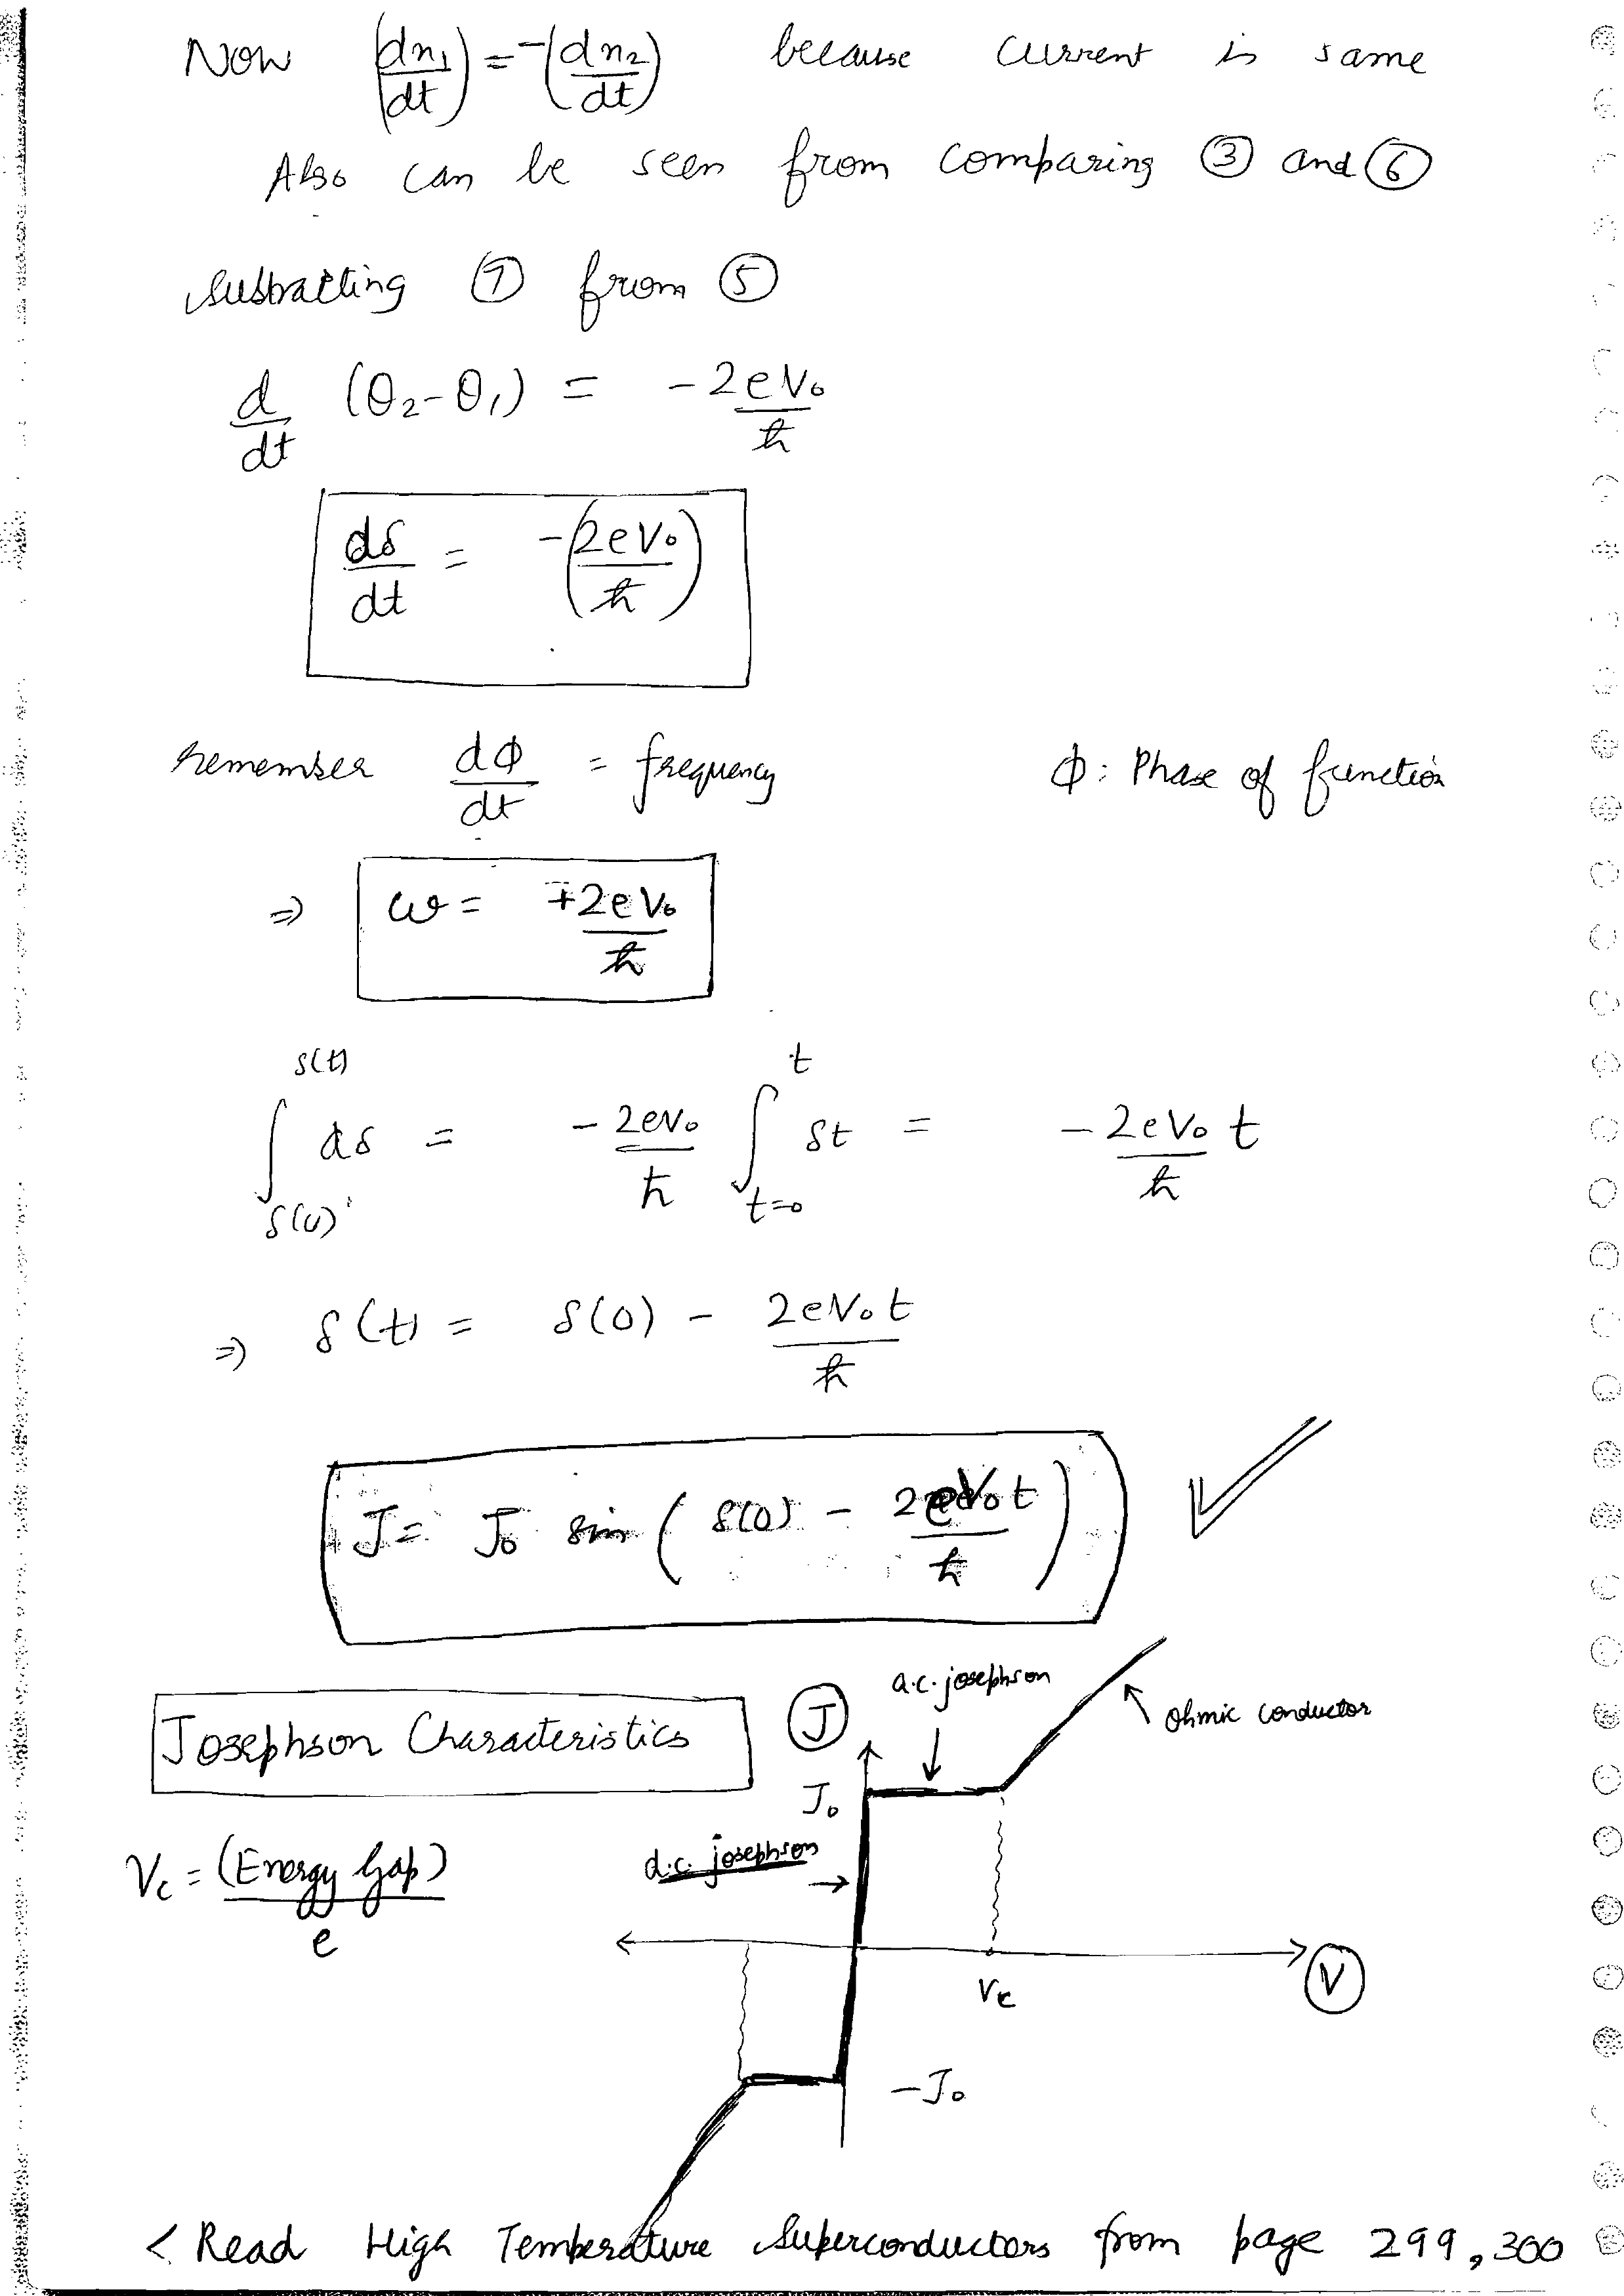 Now (dn₁/dt) = -(dn₂/dt) because current is same
Also can be seen from comparing ③ and ⑥
Subtracting ⑦ from ⑤
d/dt (θ₂-θ₁) = -2eV₀/ħ
dδ/dt = -(2eV₀/ħ)
remember dΦ/dt = frequency Φ: Phase of function
⇒ ω = +2eV₀/ħ
∫_{δ(0)}^{δ(t)} dδ = -2eV₀/ħ ∫_{t=0}^{t} δt = -2eV₀/ħ t
⇒ δ(t) = δ(0) - 2eV₀t/ħ
J = J₀ sin (δ(0) - 2eV₀t/ħ)
a.c. josephson
Ohmic conductor
Josephson Characteristics
J
J₀
d.c. josephson
V_c = (Energy Gap)/e
V_c
V
-J₀
< Read High Temperature Superconductors from page 299, 300